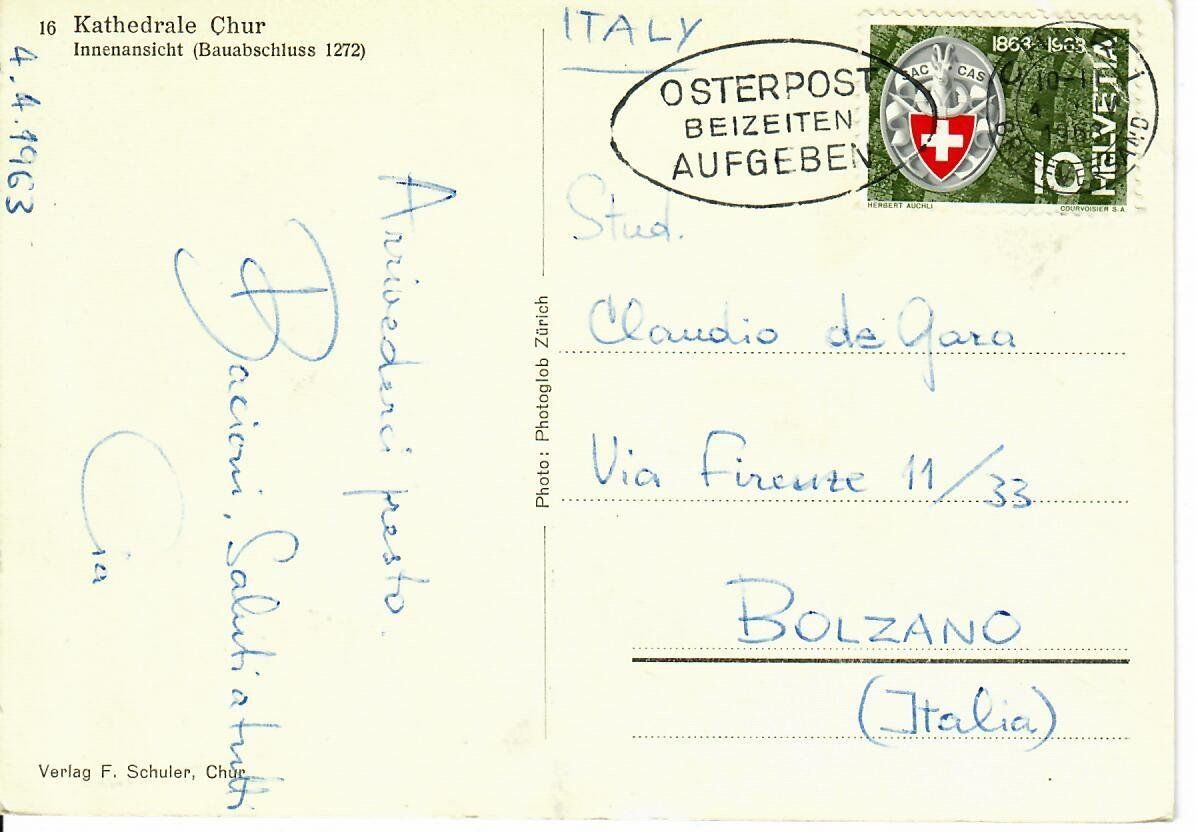 16 Kathedrale Chur
Innenansicht (Bauabschluss 1272)
4.4.1963
Arrivederci presto.
Bacioni, Saluti a tutti
Cia
Verlag F. Schuler, Chur
Photo: Photoglob Zürich
ITALY
OSTERPOST
BEIZEITEN
AUFGEBEN
1863-1963
SAC CAS
HELVETIA
10
HERBERT AUCHLI
COURVOISIER S.A.
10-11
1963
Stud.
Claudio de Gara
Via Firenze 11/33
BOLZANO
(Italia)